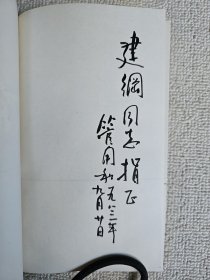 建綱同志指正
管用和
一九八三年
九月廿日